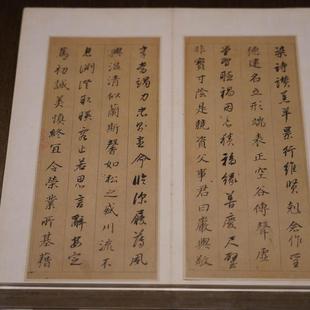 染詩讚羔羊景行維賢剋念作聖
德建名立形端表正空谷傳聲虛
堂習聽禍因惡積福緣善慶尺璧
非寶寸陰是競資父事君曰嚴與敬
孝當竭力忠則盡命臨深履薄夙
興溫清似蘭斯馨如松之盛川流不
息淵澄取暎容止若思言辭安定
篤初誠美慎終宜令榮業所基籍